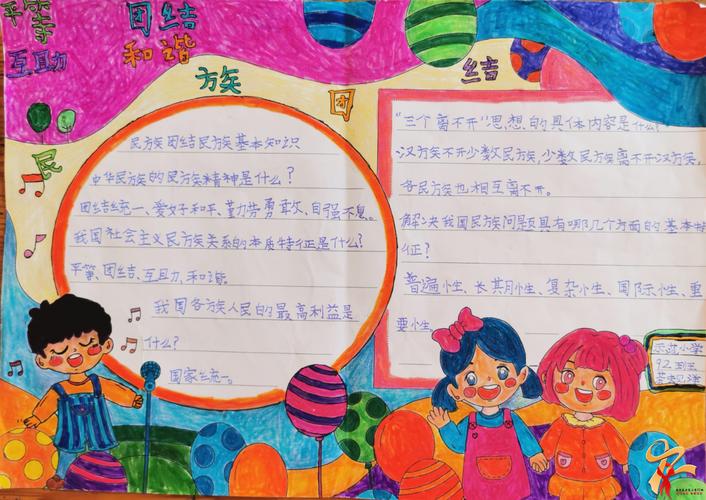 平等
互助
团结
和谐
民
族
团
结
民族团结民族基本知识
中华民族的民族精神是什么?
团结统一、爱好和平、勤劳勇敢、自强不息。
我国社会主义民族关系的本质特征是什么?
平等、团结、互助、和谐。
我国各族人民的最高利益是
什么?
国家统一。
“三个离不开”思想的具体内容是什么
汉族离不开少数民族,少数民族离不开汉族,
各民族也相互离不开。
解决我国民族问题具有哪几个方面的基本特
征?
普遍性、长期性、复杂性、国际性、重
要性
示范小学
92班